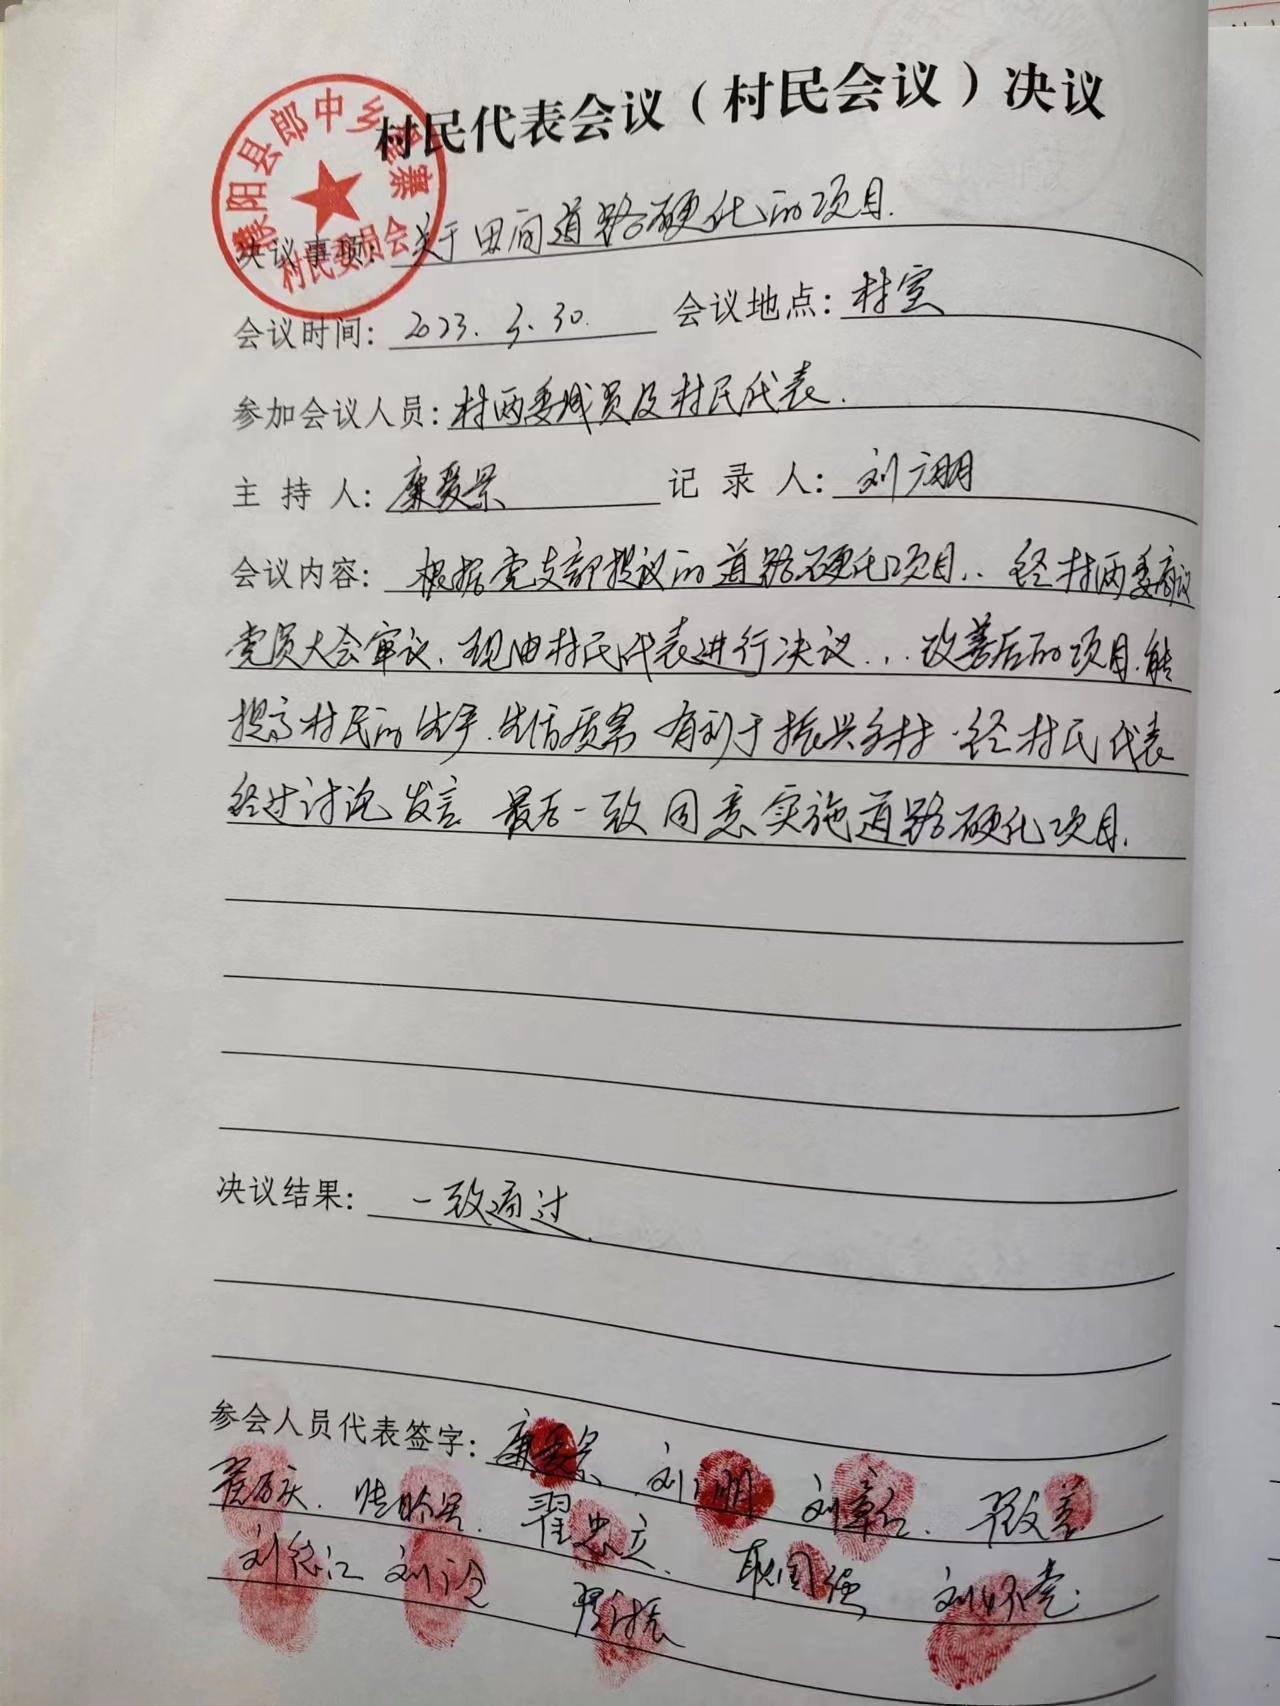 村民代表会议（村民会议）决议
濮阳县郎中乡寨
村民委员会
决议事项：关于田间道路硬化的项目.
会议时间：2023.3.30. 会议地点：村室
参加会议人员：村两委成员及村民代表.
主 持 人：廉爱景 记 录 人：刘广朋
会议内容：根据党支部提议的道路硬化项目.. 经村两委商议
党员大会审议. 现由村民代表进行决议... 改善后的项目.能
提高村民的生产.生活质累 有利于振兴乡村.经村民代表
经过讨论发言 最后一致同意实施道路硬化项目.
决议结果：一致通过.
参会人员代表签字：廉爱景 刘广朋 刘章
翟忠立 耿国强 刘怀党
刘 刘 翟振